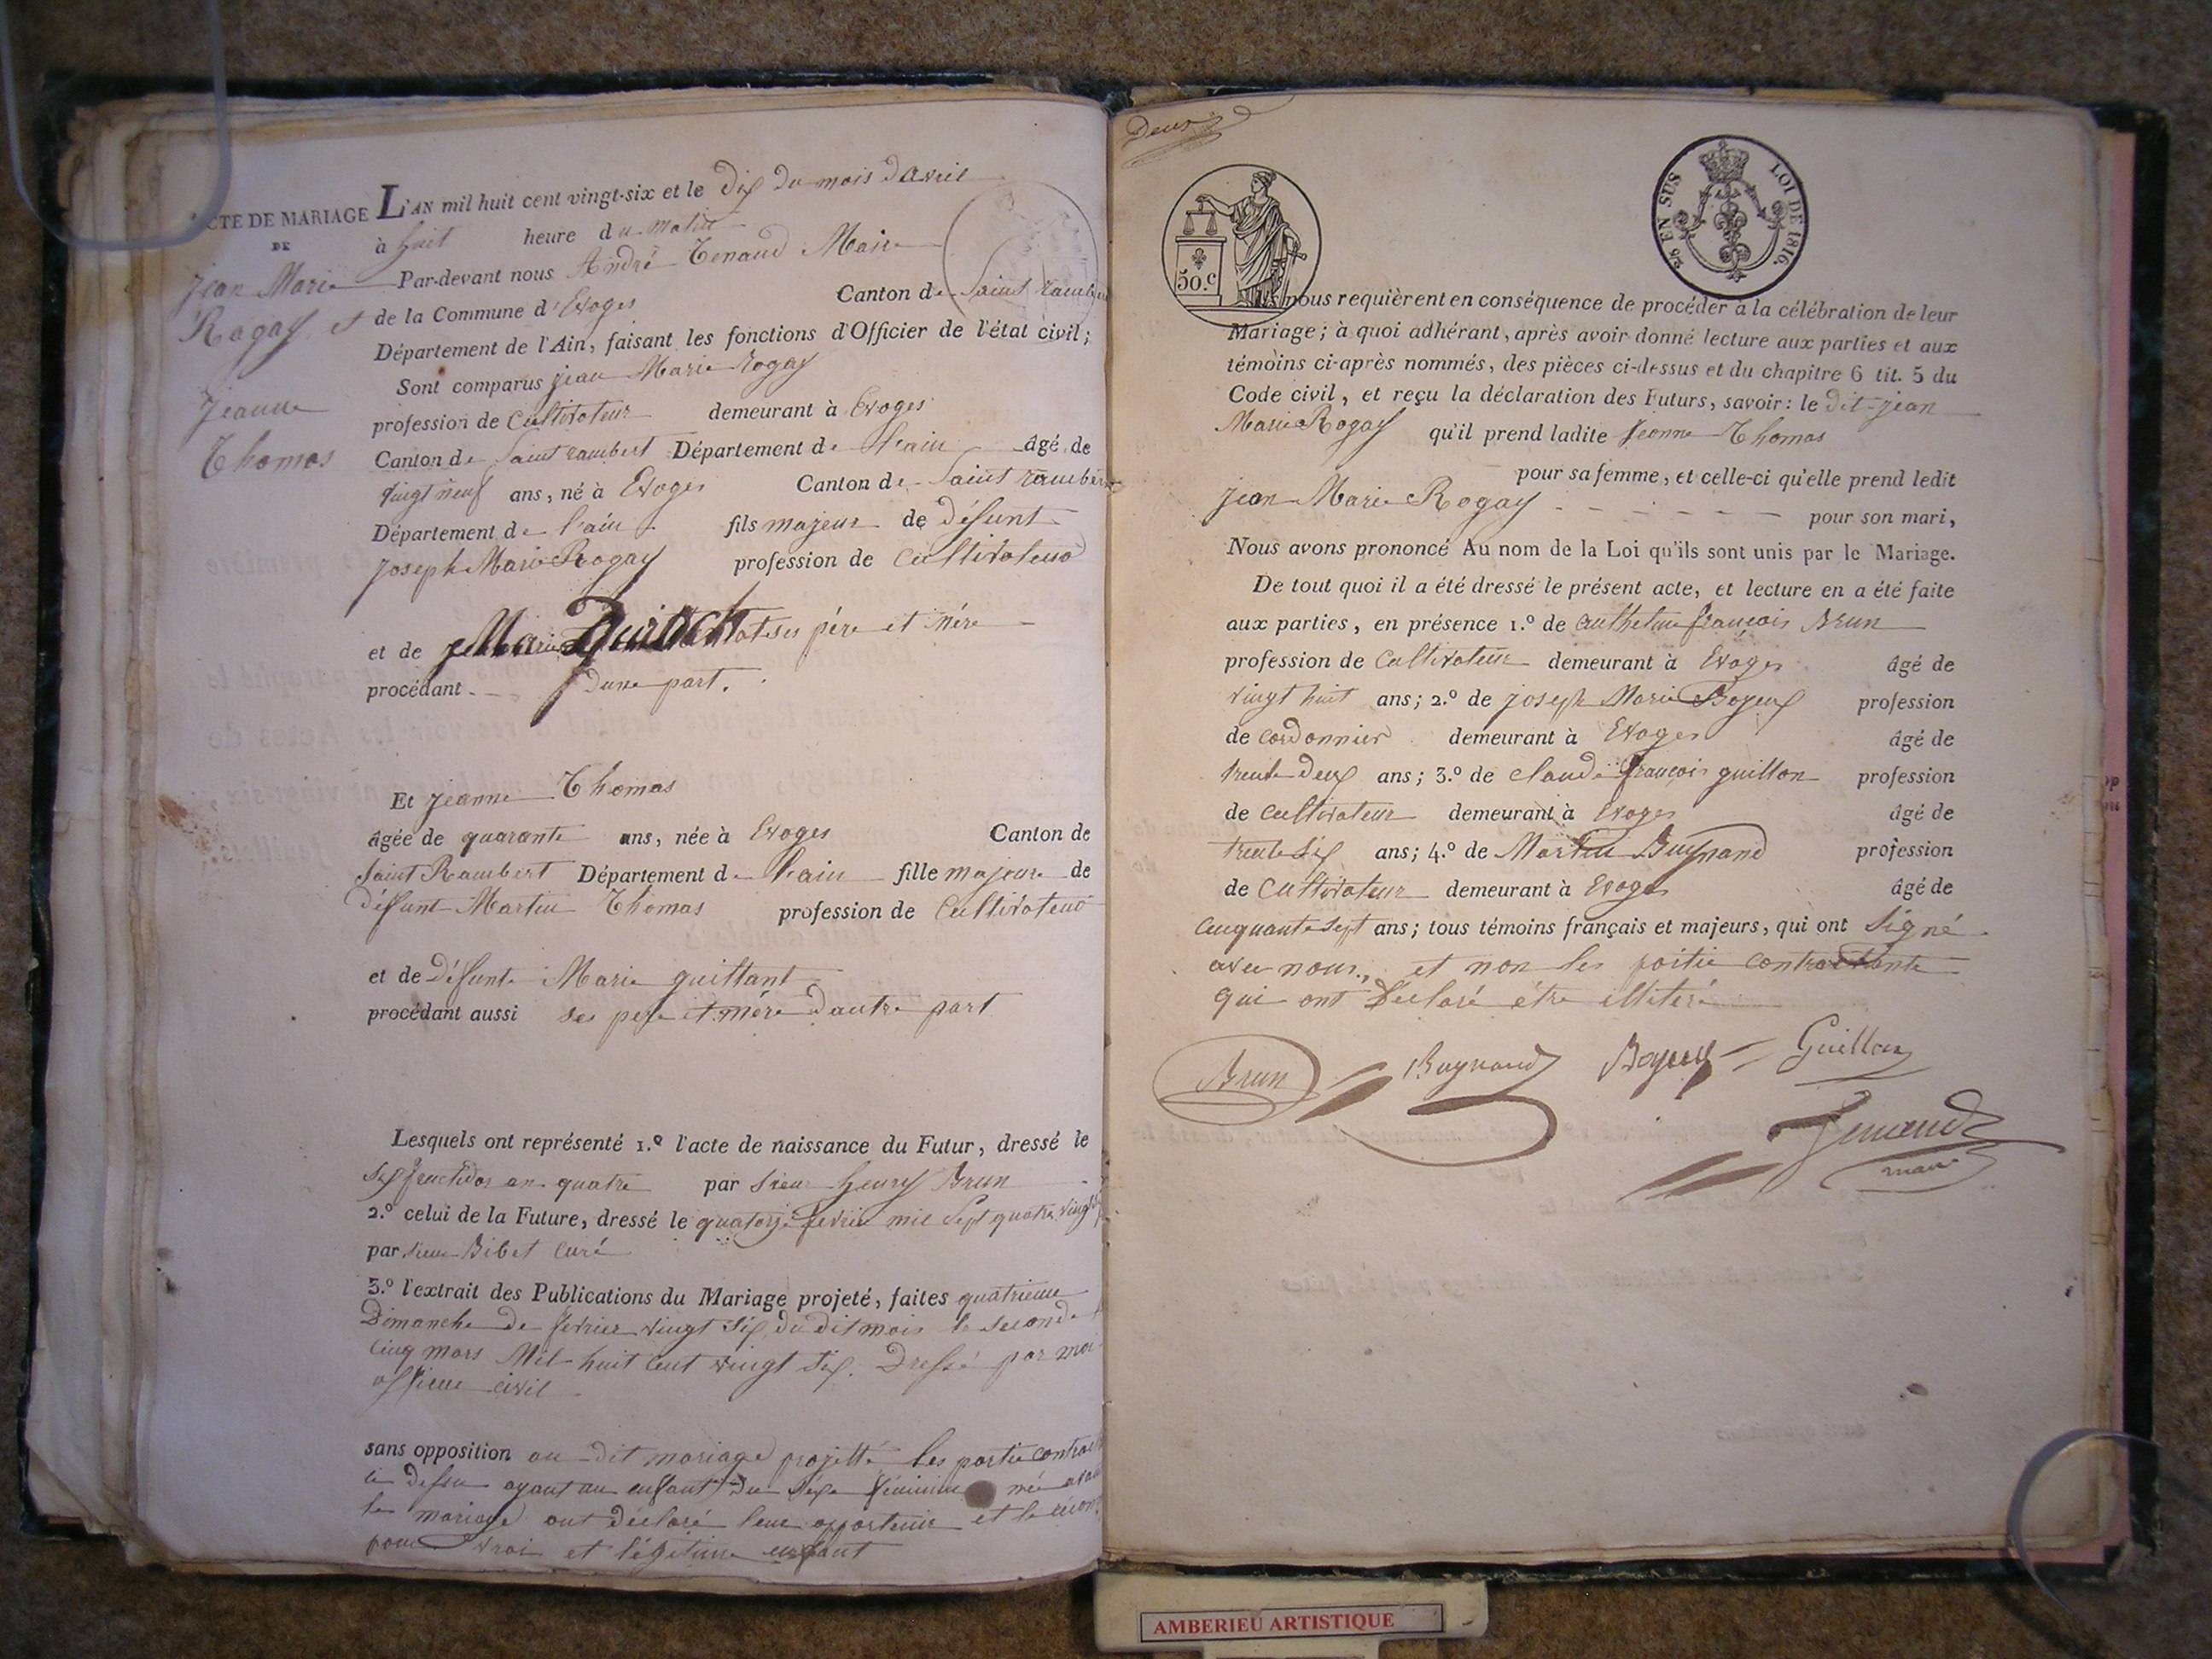 ACTE DE MARIAGE
DE
Jean Marie
Rogay et
Jeanne
Thomas
L'AN mil huit cent vingt-six et le dix du mois davril
à huit heure du matin
Par-devant nous André Tenand Maire
de la Commune d'Evoges Canton de Saint rambert
Département de l'Ain, faisant les fonctions d'Officier de l'état civil;
Sont comparus jean Marie Rogay
profession de Cultivateur demeurant à Evoges
Canton de Saint rambert Département de l'ain âgé de
vingt neuf ans, né à Evoges Canton de Saint rambert
Département de l'ain fils majeur de défunt
joseph Marie Rogay profession de Cultivateur
et de Marie ses père et mère
procédant dune part.
Et jeanne Thomas
âgée de quarante ans, née à Evoges Canton de
Saint Rambert Département de l'ain fille majeure de
défunt Martin Thomas profession de Cultivateur
et de défunte Marie guillant
procédant aussi ses pere et mère dautre part
Lesquels ont représenté 1.º l'acte de naissance du Futur, dressé le
six fructidor an quatre par sieur henry Brun
2.º celui de la Future, dressé le quatorze fevrier mil sept quatre vingt
par sieur Bibet curé
3.º l'extrait des Publications du Mariage projeté, faites quatrieme
Dimanche de fevrier vingt six du dit mois le seconde
cinq mars Mil huit cent vingt six. Dressé par moi
officier civil
sans opposition au dit mariage projetté les partie contract
ci dessu ayant un enfant du sexe féminin née avant
le mariage ont déclaré leur appartenir et le reconn
pour vrai et légitime enfant
Deux
50.c
26 EN SUS LOI DE 1816.
Ils nous requièrent en conséquence de procéder à la célébration de leur
Mariage; à quoi adhérant, après avoir donné lecture aux parties et aux
témoins ci-après nommés, des pièces ci-dessus et du chapitre 6 tit. 5 du
Code civil, et reçu la déclaration des Futurs, savoir: le dit jean
Marie Rogay qu'il prend ladite jeanne Thomas
pour sa femme, et celle-ci qu'elle prend ledit
jean Marie Rogay - - - - - - pour son mari,
Nous avons prononcé Au nom de la Loi qu'ils sont unis par le Mariage.
De tout quoi il a été dressé le présent acte, et lecture en a été faite
aux parties, en présence 1.º de anthelme françois Brun
profession de Cultivateur demeurant à Evoges âgé de
vingt huit ans; 2.º de joseph Marie Bogeux profession
de cordonnier demeurant à Evoges âgé de
trente deux ans; 3.º de claude françois guillon profession
de cultivateur demeurant à Evoges âgé de
trente six ans; 4.º de Martin Buynand profession
de Cultivateur demeurant à Evoges âgé de
cinquante sept ans; tous témoins français et majeurs, qui ont Signé
avec nous, et non les partie contractante
qui ont déclaré être illiteré
Brun Buynand Guillon
Tenand
maire
AMBERIEU ARTISTIQUE